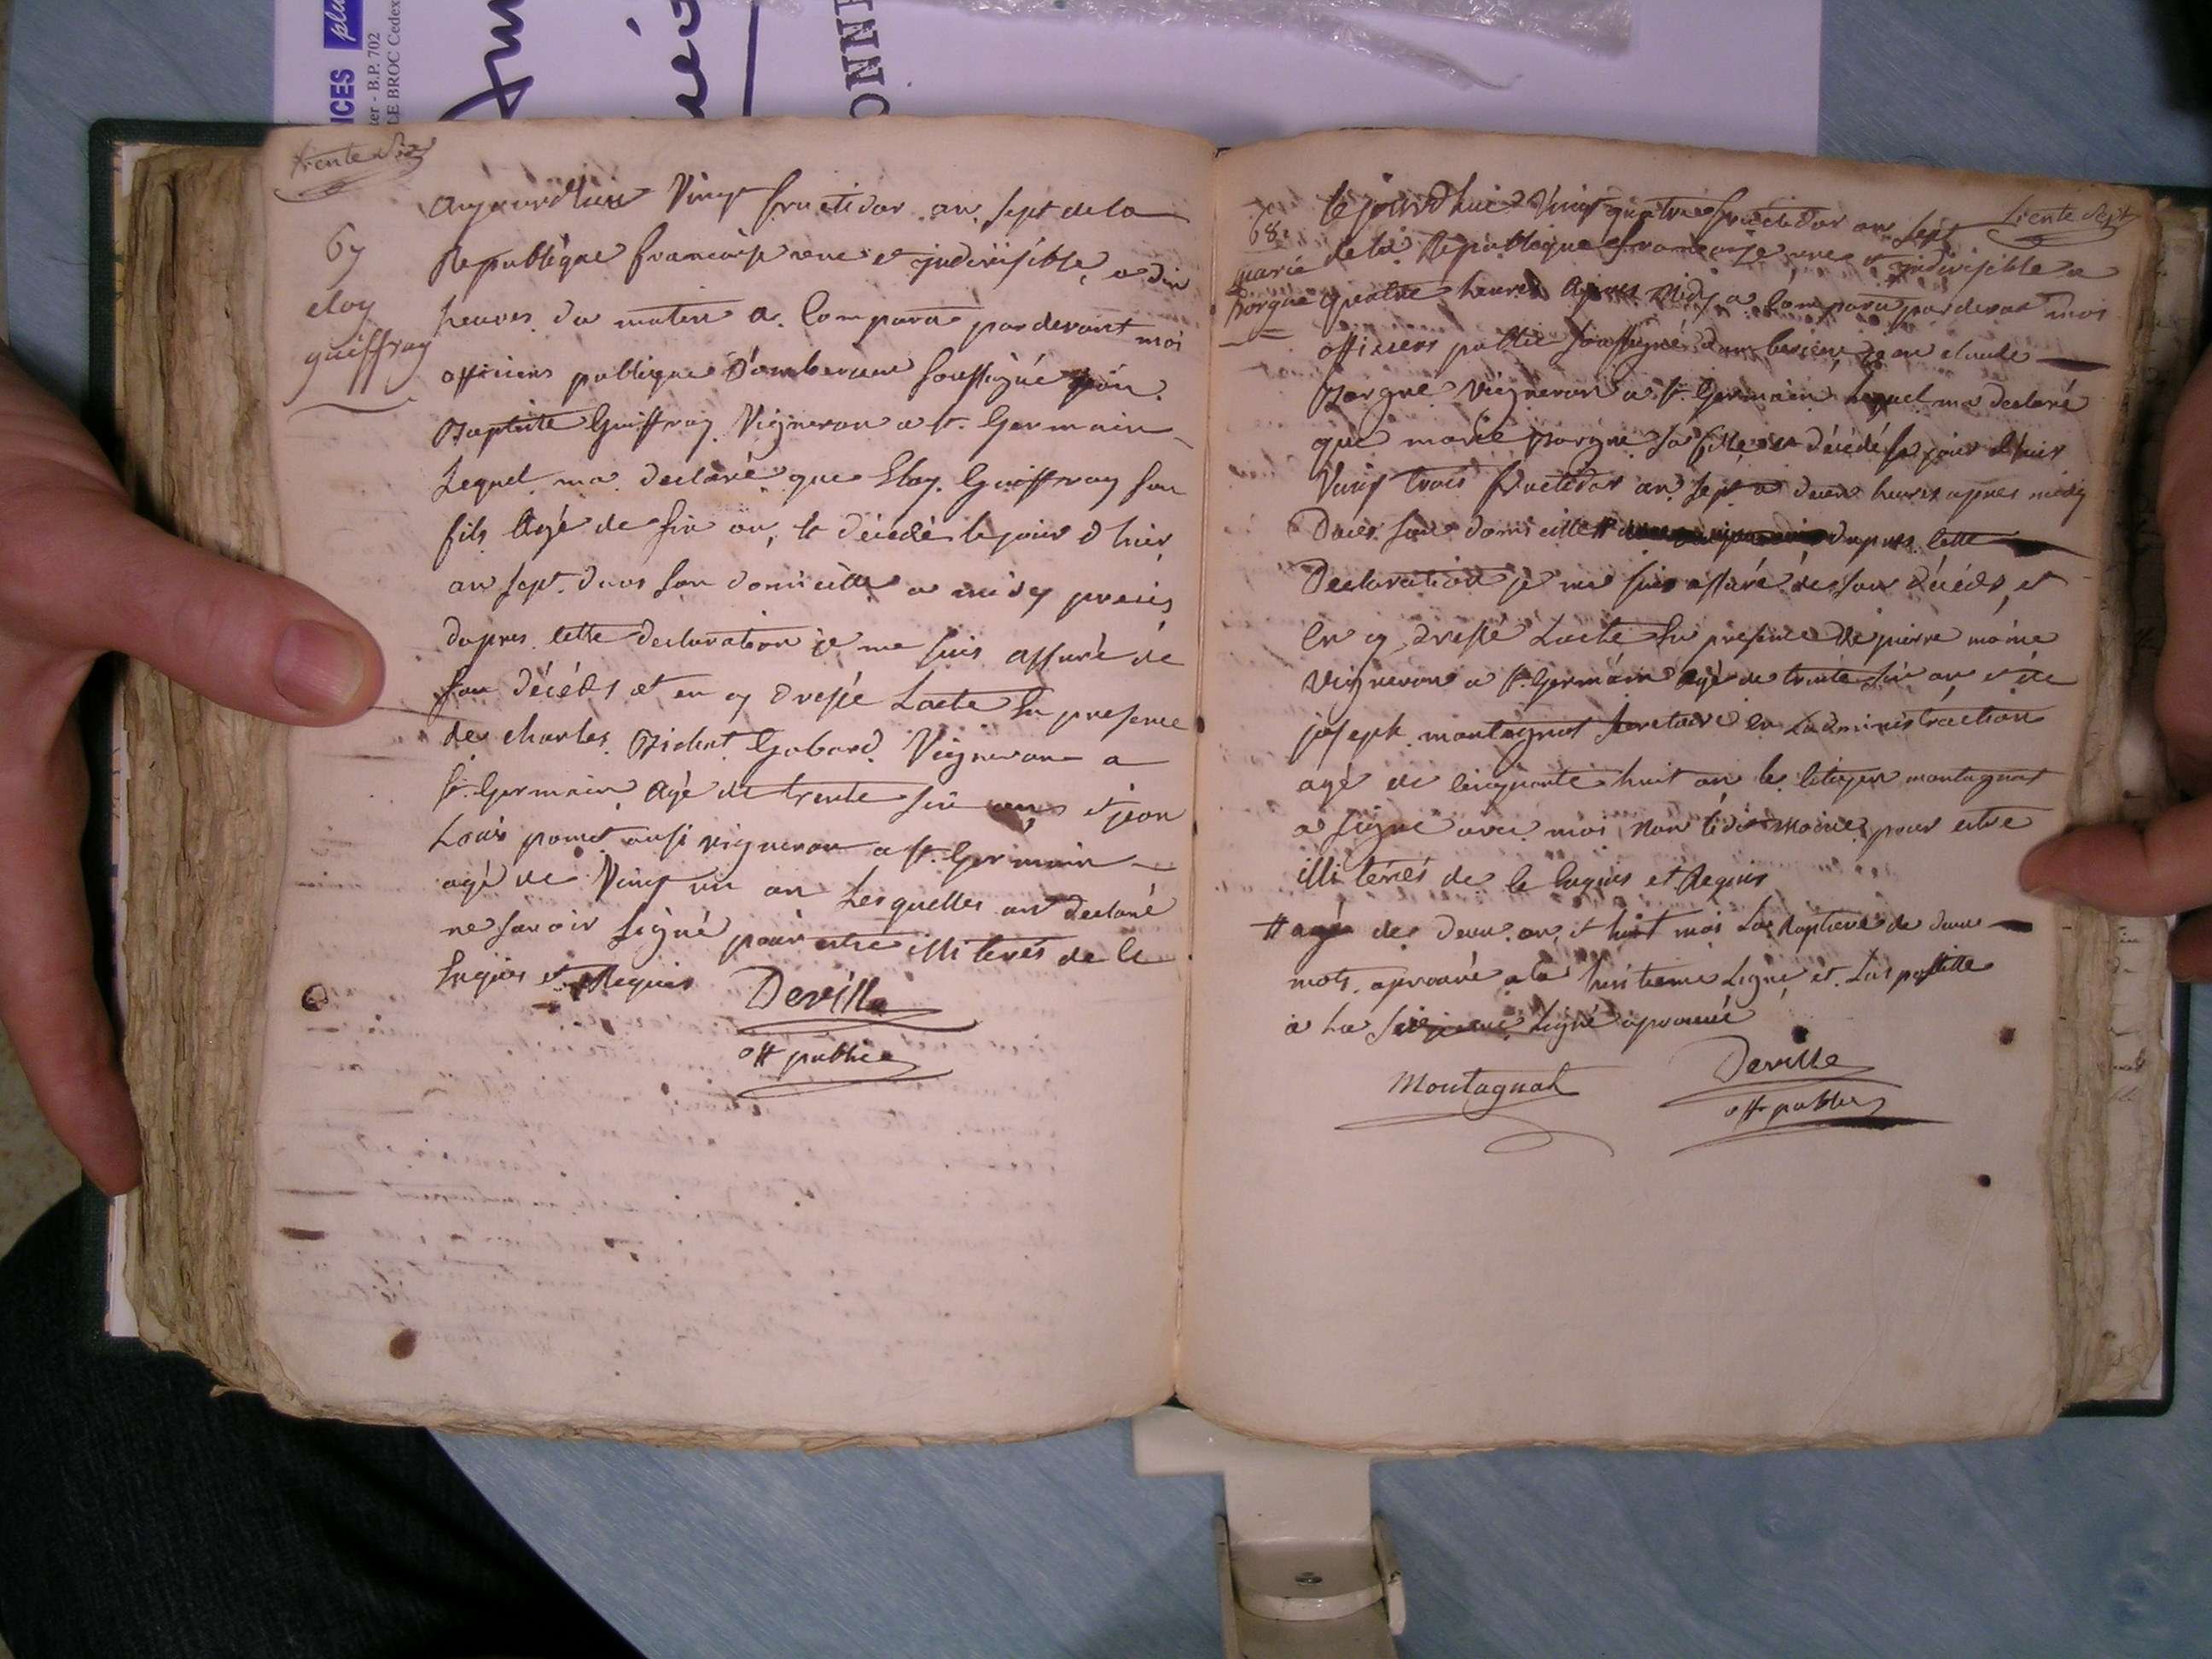 ICES plu
ter - B.P. 702
LE BROC Cedex
ONN
trente Six
67
eloy
guiffray
aujourdhui Vingt fructidor an sept de la
Republique francaise une et jndivisible a dix
heures du matin a Comparu pardevant moi
officiers publique d'amberieux soussigné jean
Baptiste Guiffray Vigneron a st. Germain
Lequel ma declaré que Eloy Guiffray son
fils Agé de six an, et décédé le jour d hier
an sept dans son domicille a midy précis
dapres cette declaration je me suis assuré de
son décéds et en ay dressé Lacte En presence
de charles Bichat Gobard Vigneron a
st. Germain Agé de trente six ans et jean
Louis ponet ausi vigneron a st. Germain
agé de Vingt un an Lesquelles on declaré
ne savoir signé pour estre illiterés de ce
Enquis et Requis
Deville
off public
trente Sept
68
marie
Borgne
Cejourdhui Vingt quatre fructidor an sept
de la Republique francaise une et jndivisible a
quatre heures Apres Midy a Comparu pardevant moi
officiers public soussigné damberieux jean claude
Borgne Vigneron a st. Germain Lequel ma declaré
que marie Borgne sa fille et décédé le jour d hier
Vingt trois fructidor an sept a deux heures apres midy
Dans son domicille # dapres cette
Declaration je me suis assuré de son décéds, et
En ay dressé Lacte En presence de pierre moine
Vigneron a st. Germain Agé de trente six an et de
joseph montagnat secretaire en Ladministraction
agé de cinquante huit an le citoyen montagnat
a signé avec moi, non ledit moine pour estre
illiterés de ce Enquis et Requis
# agé de deux an, et huit mois La Rapture de deux
mots aprouvé a la huitieme Ligne et Las postille
a La ligne aprouvé
Montagnat
Deville
off public